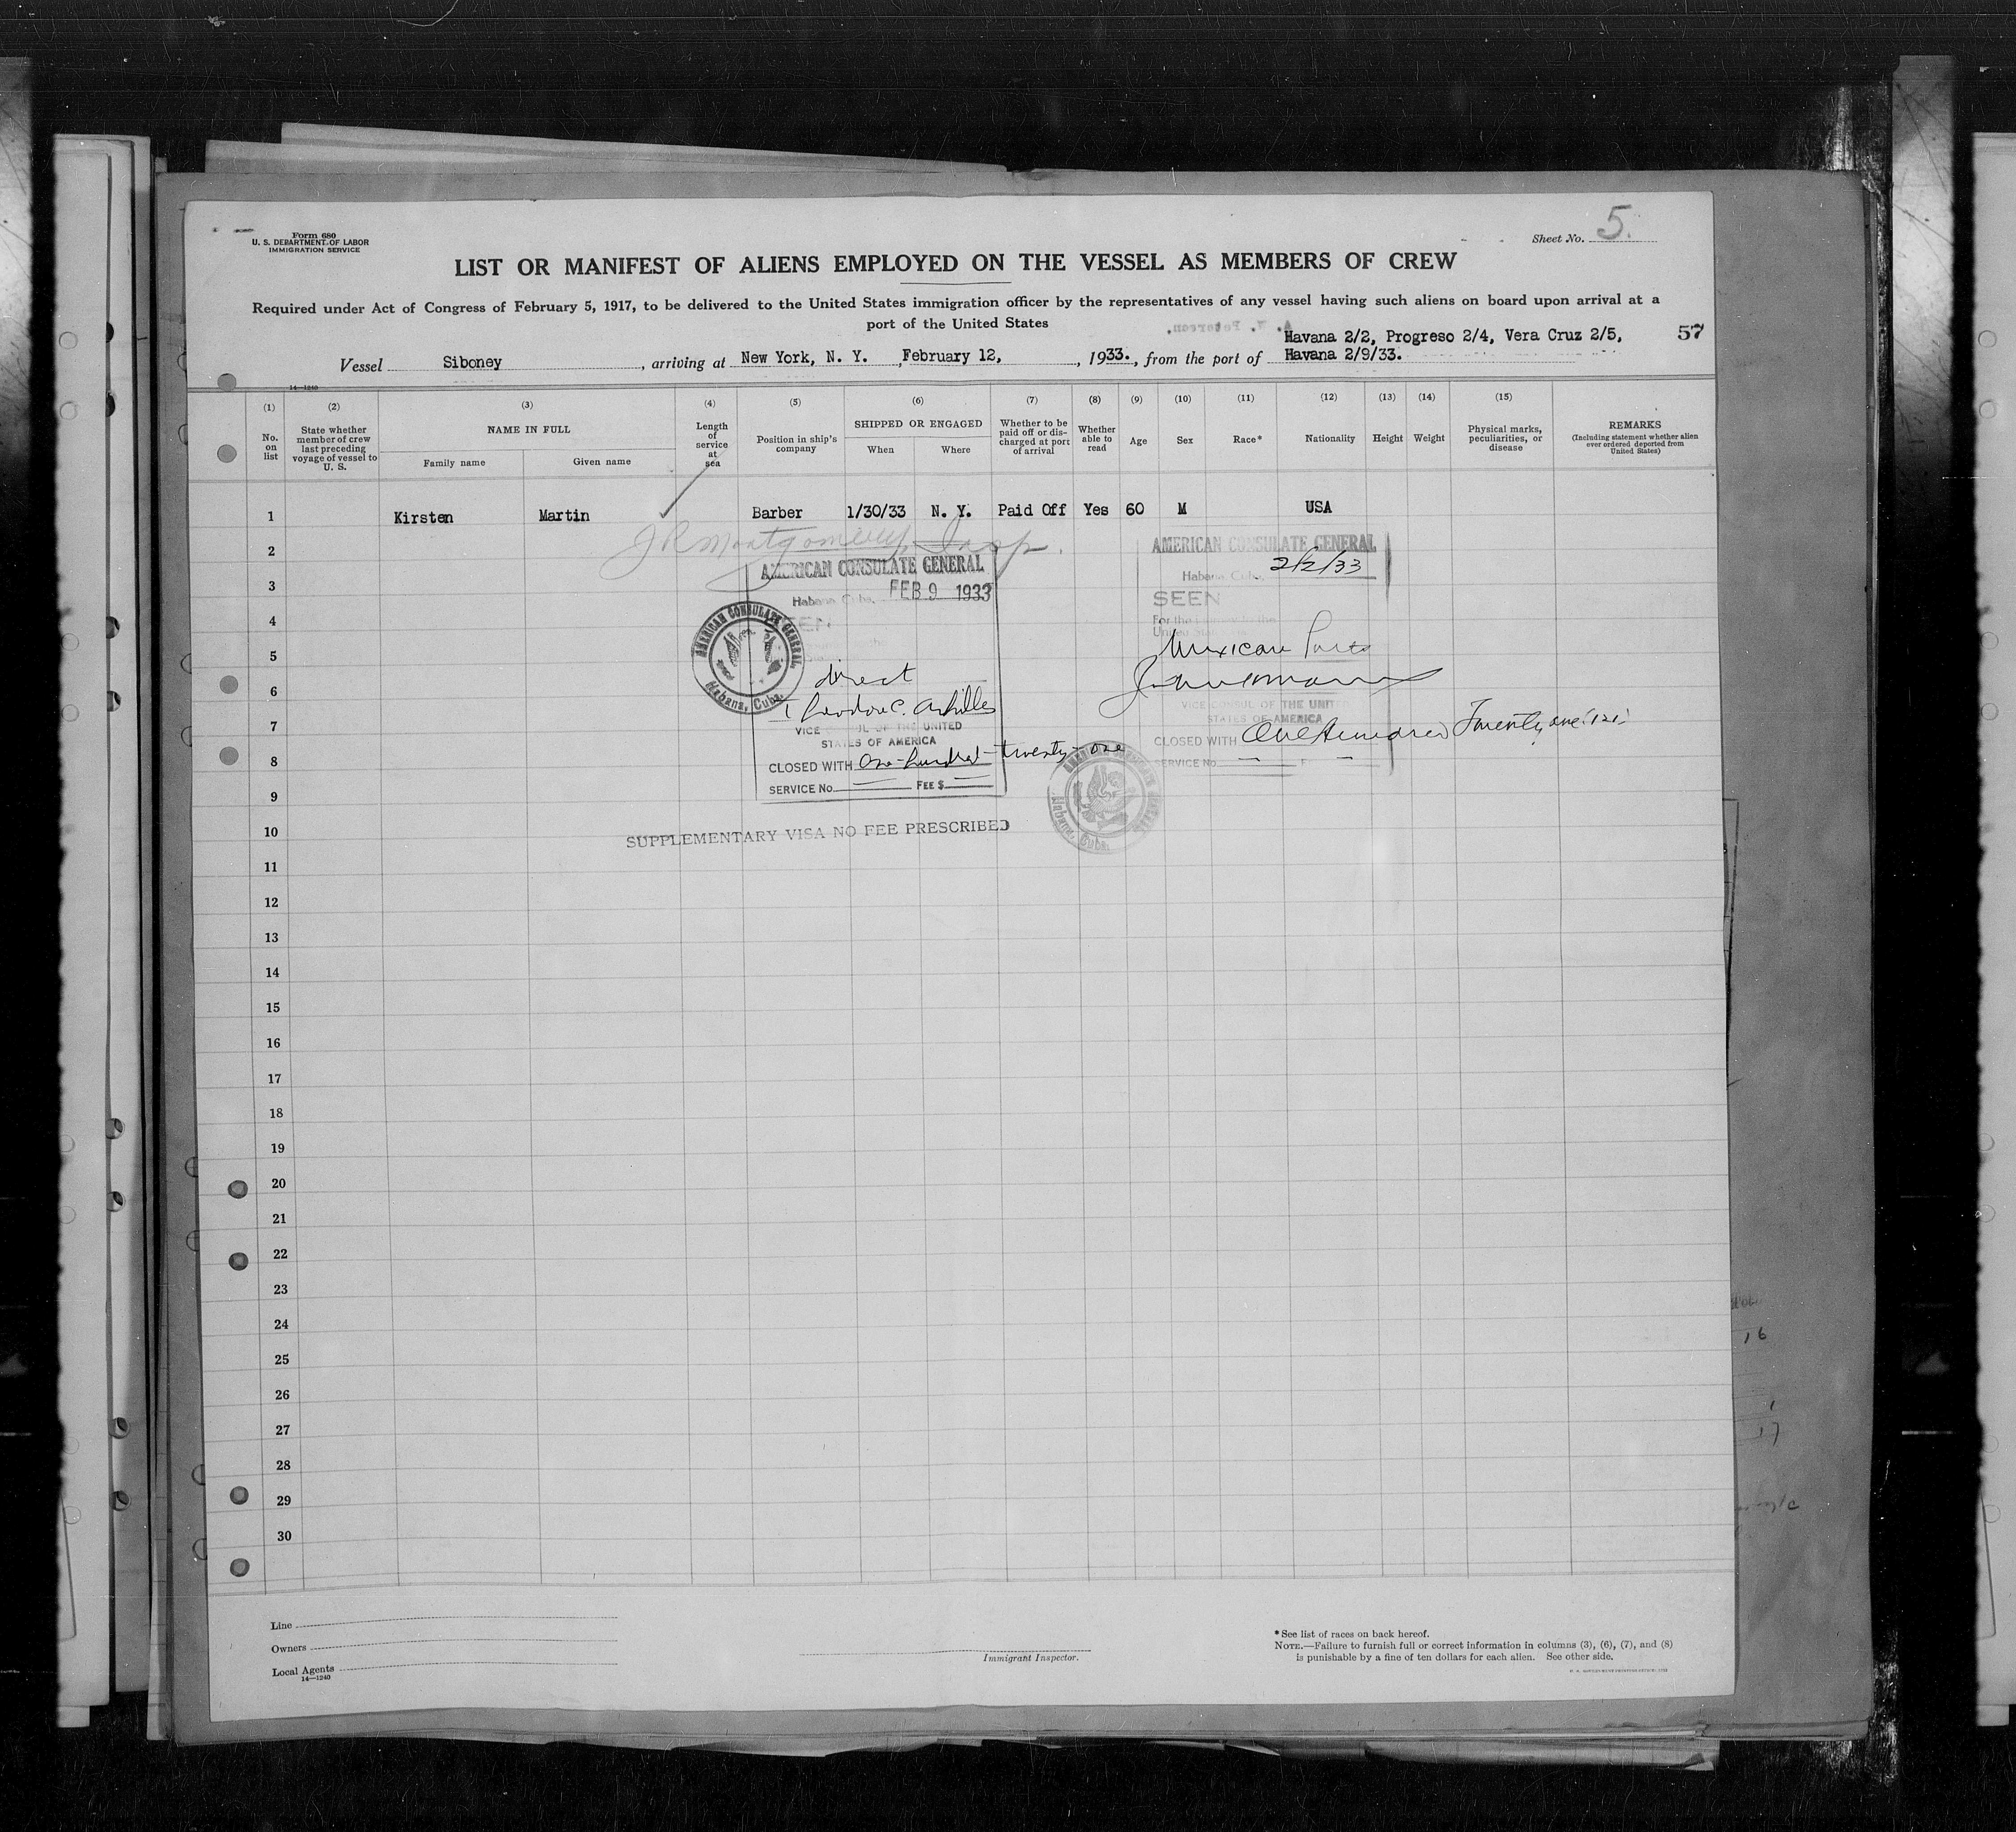 Form 680
U. S. DEPARTMENT OF LABOR
IMMIGRATION SERVICE
Sheet No. 5.
LIST OR MANIFEST OF ALIENS EMPLOYED ON THE VESSEL AS MEMBERS OF CREW
Required under Act of Congress of February 5, 1917, to be delivered to the United States immigration officer by the representatives of any vessel having such aliens on board upon arrival at a
port of the United States
Havana 2/2, Progreso 2/4, Vera Cruz 2/5, 57
Vessel Siboney, arriving at New York, N. Y., February 12, 1933., from the port of Havana 2/9/33.
14—1240
(1) (2) (3) (4) (5) (6) (7) (8) (9) (10) (11) (12) (13) (14) (15)
No. on list
State whether member of crew last preceding voyage of vessel to U. S.
NAME IN FULL
Family name Given name
Length of service at sea
Position in ship's company
SHIPPED OR ENGAGED
When Where
Whether to be paid off or discharged at port of arrival
Whether able to read
Age
Sex
Race*
Nationality
Height
Weight
Physical marks, peculiarities, or disease
REMARKS
(Including statement whether alien ever ordered deported from United States)
1 Kirsten Martin Barber 1/30/33 N. Y. Paid Off Yes 60 M USA
J R Montgomery Insp.
2
3
4
5
6
7
8
9
10
11
12
13
14
15
16
17
18
19
20
21
22
23
24
25
26
27
28
29
30
AMERICAN CONSULATE GENERAL
Habana Cuba, FEB 9 1933
AMERICAN CONSULATE GENERAL, Habana, Cuba.
direct
Theodore C. Achilles
VICE CONSUL OF THE UNITED
STATES OF AMERICA
CLOSED WITH One-hundred-twenty-one
SERVICE No. FEE $
SUPPLEMENTARY VISA NO FEE PRESCRIBED
AMERICAN CONSULATE GENERAL
Habana Cuba, 2/2/33
SEEN
For the
United States
Mexican Ports
VICE CONSUL OF THE UNITED
STATES OF AMERICA
CLOSED WITH One Hundred Twenty one (121)
SERVICE No.
AMERICAN CONSULATE GENERAL, Habana, Cuba.
Line
Owners
Local Agents
14—1240
Immigrant Inspector.
*See list of races on back hereof.
NOTE.—Failure to furnish full or correct information in columns (3), (6), (7), and (8)
is punishable by a fine of ten dollars for each alien. See other side.